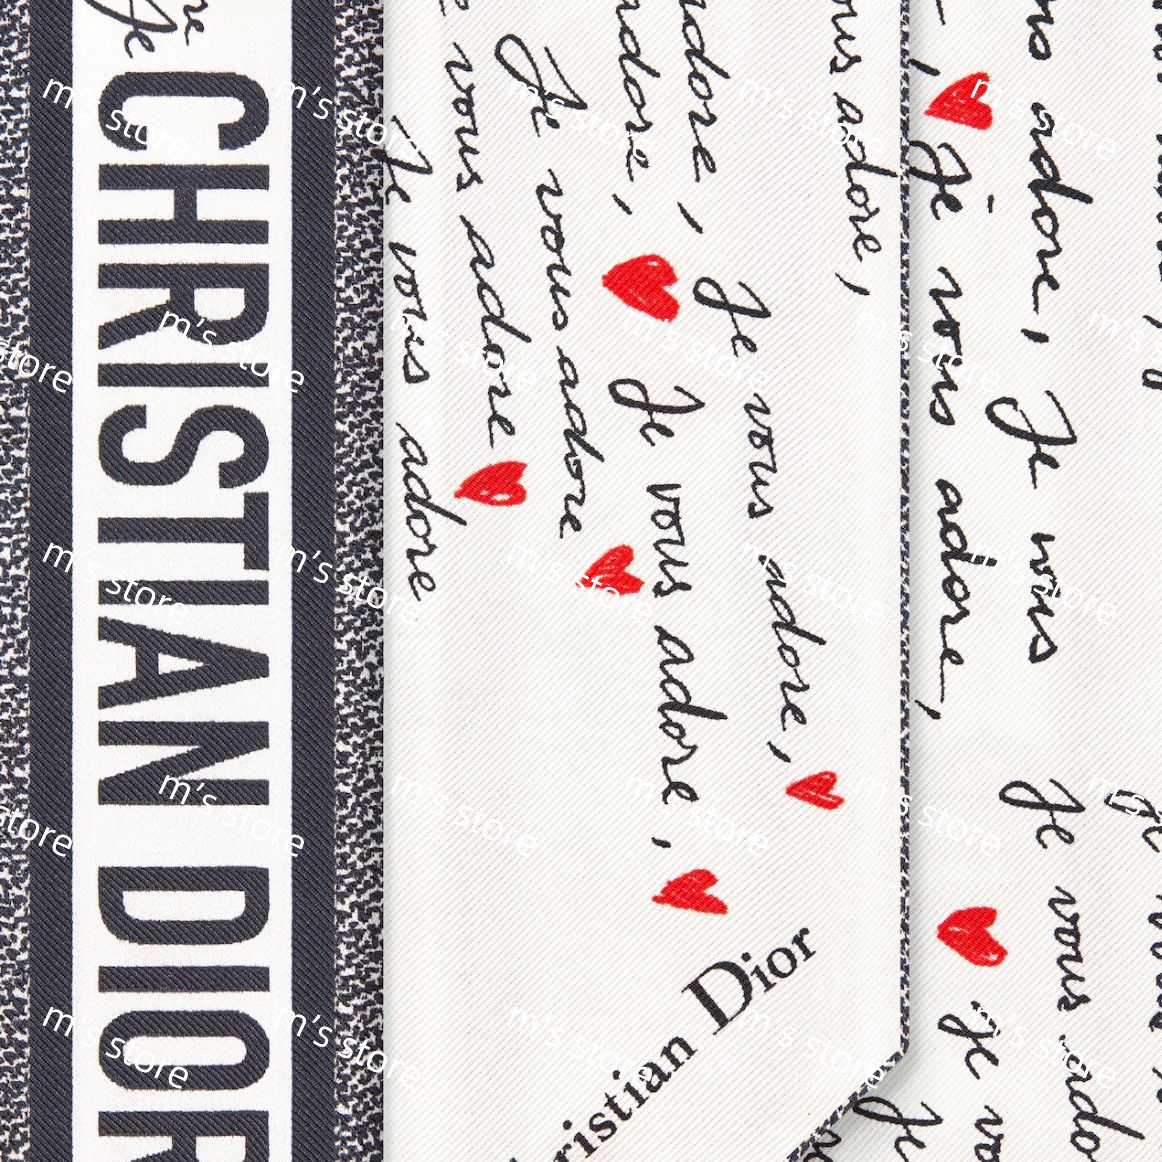 re
Je
CHRISTIAN DIOR
Je vous adore
vous adore
Je vous adore
adore,
Je vous adore,
adore,
Je vous adore,
vous adore,
Je vous adore,
adore,
Je vous
Je vous
Je
Je
Dior
m's store
m's store
m's store
m's store
m's store
m's store
m's store
m's store
m's store
m's store
m's store
m's store
m's store
m's store
m's store
m's store